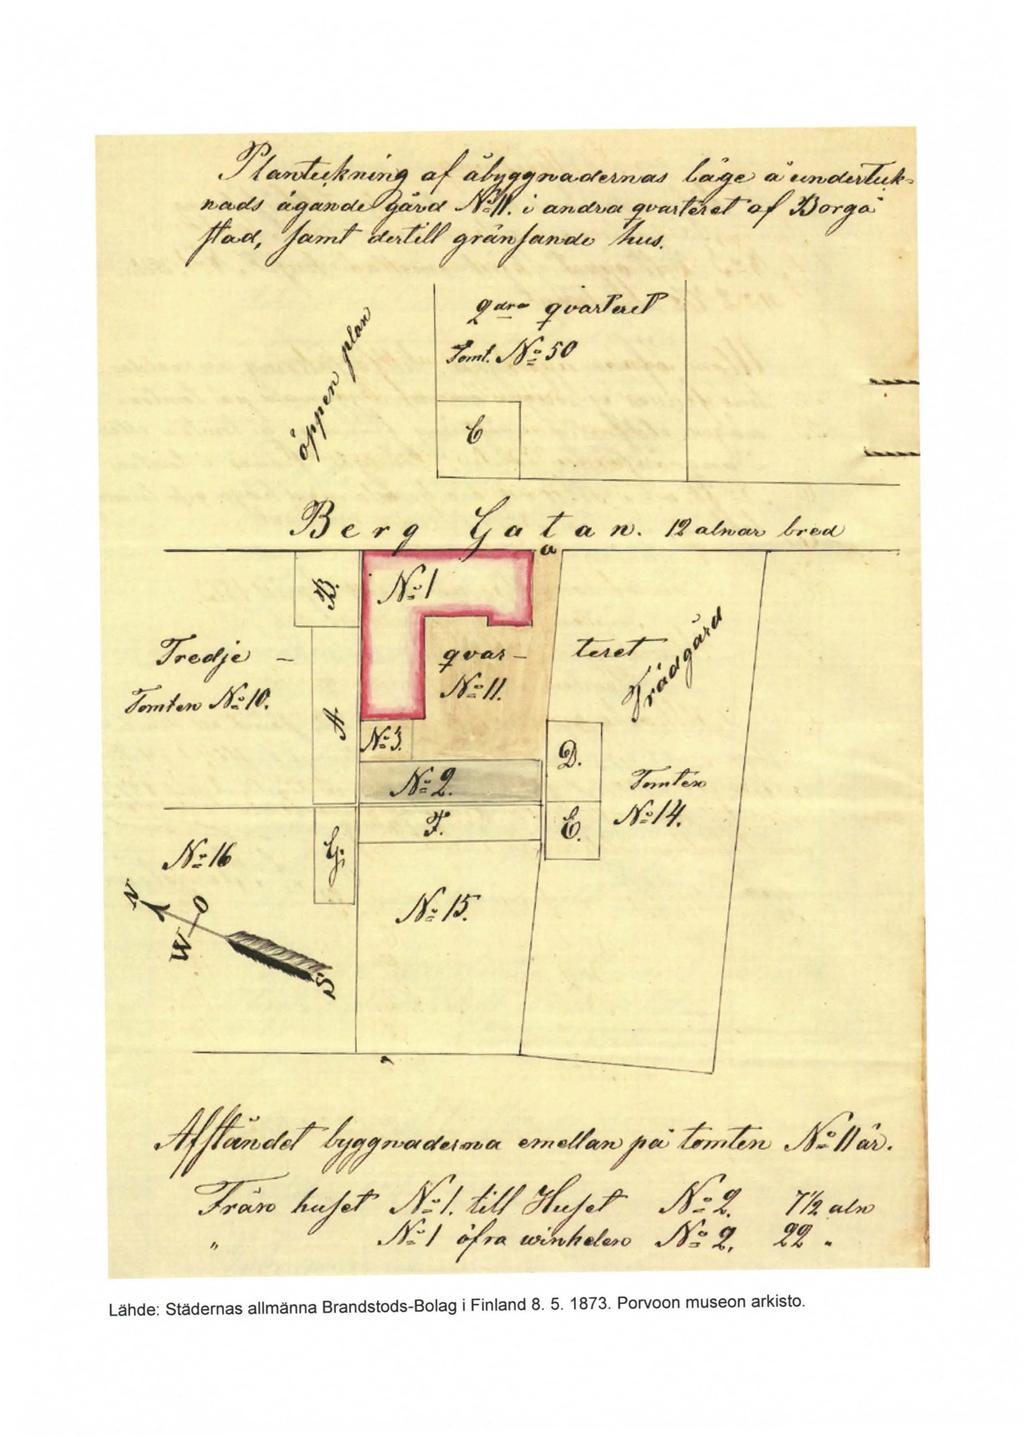 Plantekning af åbyggnadernas läge å underteck=
nads ägande gård №11. i andra qvarteret af Borgå
stad, samt dertill gränsande hus.
öppen plan
2dra qvarteret
Tomt. №50
C
Berg Gatan. 12 alnar bred
a
B.
№1
Tredje –
qvar–
teret
Trädgård
Tomten №10.
№11.
A.
№3.
D.
№2.
Tomten
F.
E.
№14.
№16
G.
N
O
№15.
W
S
Afståndet byggnaderna emellan på tomten №11 är.
Från huset №1. till Huset №2. 7½ aln
" №1 öfra winkelen №2, 22 "
Lähde: Städernas allmänna Brandstods-Bolag i Finland 8. 5. 1873. Porvoon museon arkisto.